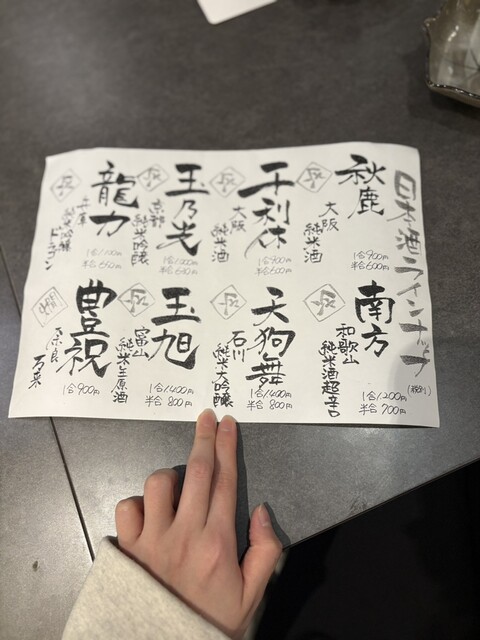 日本酒ラインナップ
(税別)
冷
秋鹿
大阪
純米酒
1合900円
半合600円
冷
千利休
大阪
純米酒
1合900円
半合600円
冷
玉乃光
京都
純米吟醸
1合1000円
半合650円
冷
龍力
兵庫
純米吟醸
ドラゴン
1合1100円
半合650円
冷
南方
和歌山
純米酒超辛口
1合1,200円
半合700円
冷
天狗舞
石川
純米大吟醸
1合1,400円
半合800円
冷
玉旭
富山
純米生原酒
1合1,400円
半合800円
豊祝
奈良
万来
1合900円